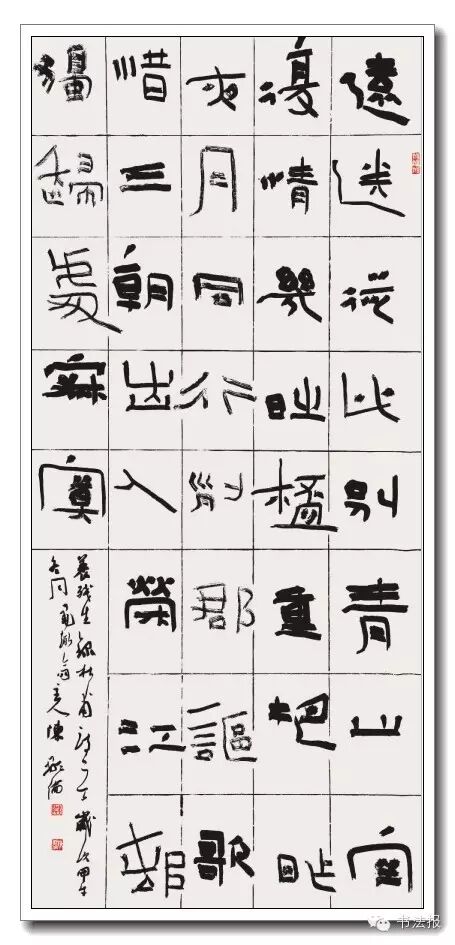 遠送從此別青山空
復情幾時桮重把昨
夜月同行列郡謳歌
惜三朝出入榮江邨
獨歸處寂寞
養残生錄杜甫詩一首歲次甲午
冬月主人陳
书法报